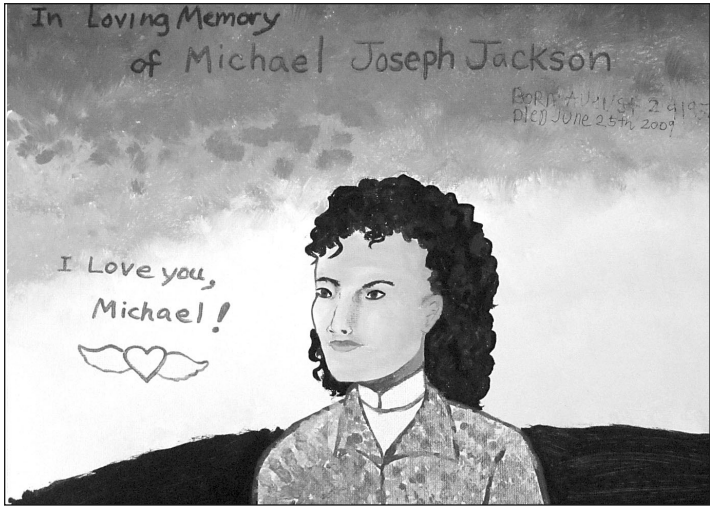 In Loving Memory
of Michael Joseph Jackson
BORN August 29
Died June 25th 2009
I Love you,
Michael!